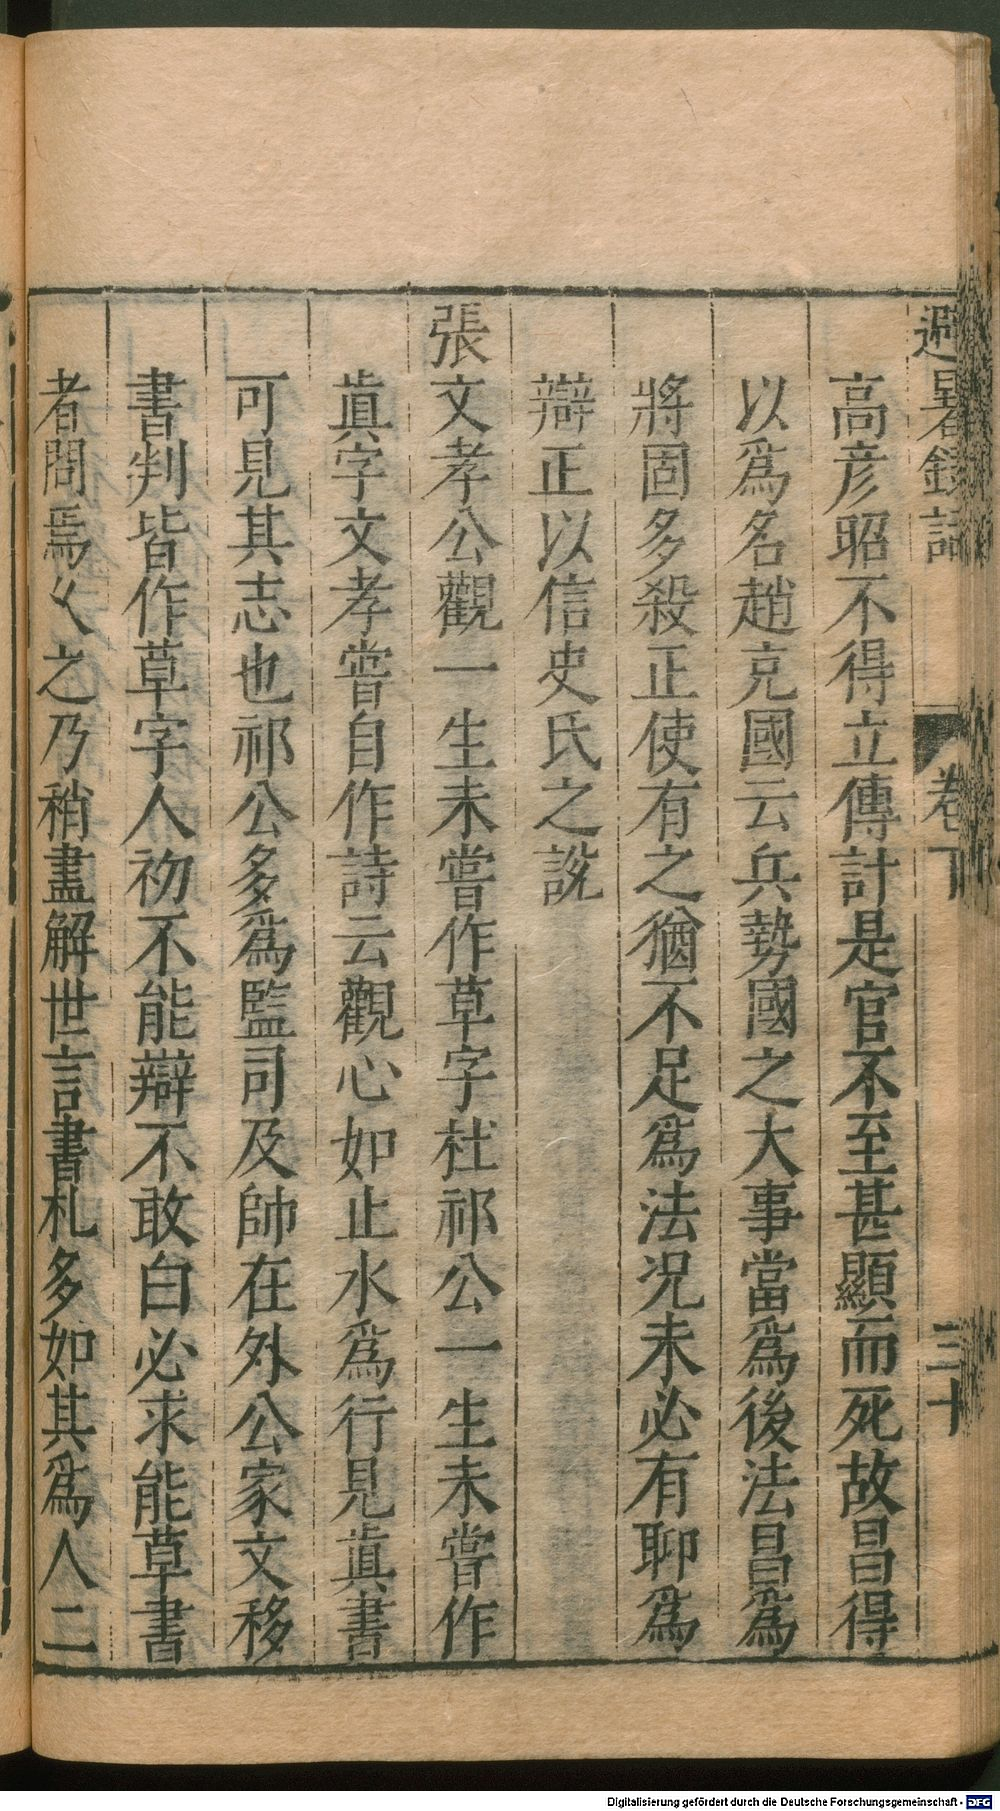 避暑錄話 卷下 三十
高彦昭不得立傳計是官不至甚顯而死故昌得
以爲名趙充國云兵勢國之大事當爲後法昌爲
將固多殺正使有之猶不足爲法况未必有聊爲
辯正以信史氏之説
張文孝公觀一生未嘗作草字杜祁公一生未嘗作
眞字文孝嘗自作詩云觀心如止水爲行見眞書
可見其志也祁公多爲監司及帥在外公家文移
書判皆作草字人初不能辯不敢白必求能草書
者問焉乆之乃稍盡解世言書札多如其爲人二
Digitalisierung gefördert durch die Deutsche Forschungsgemeinschaft - DFG